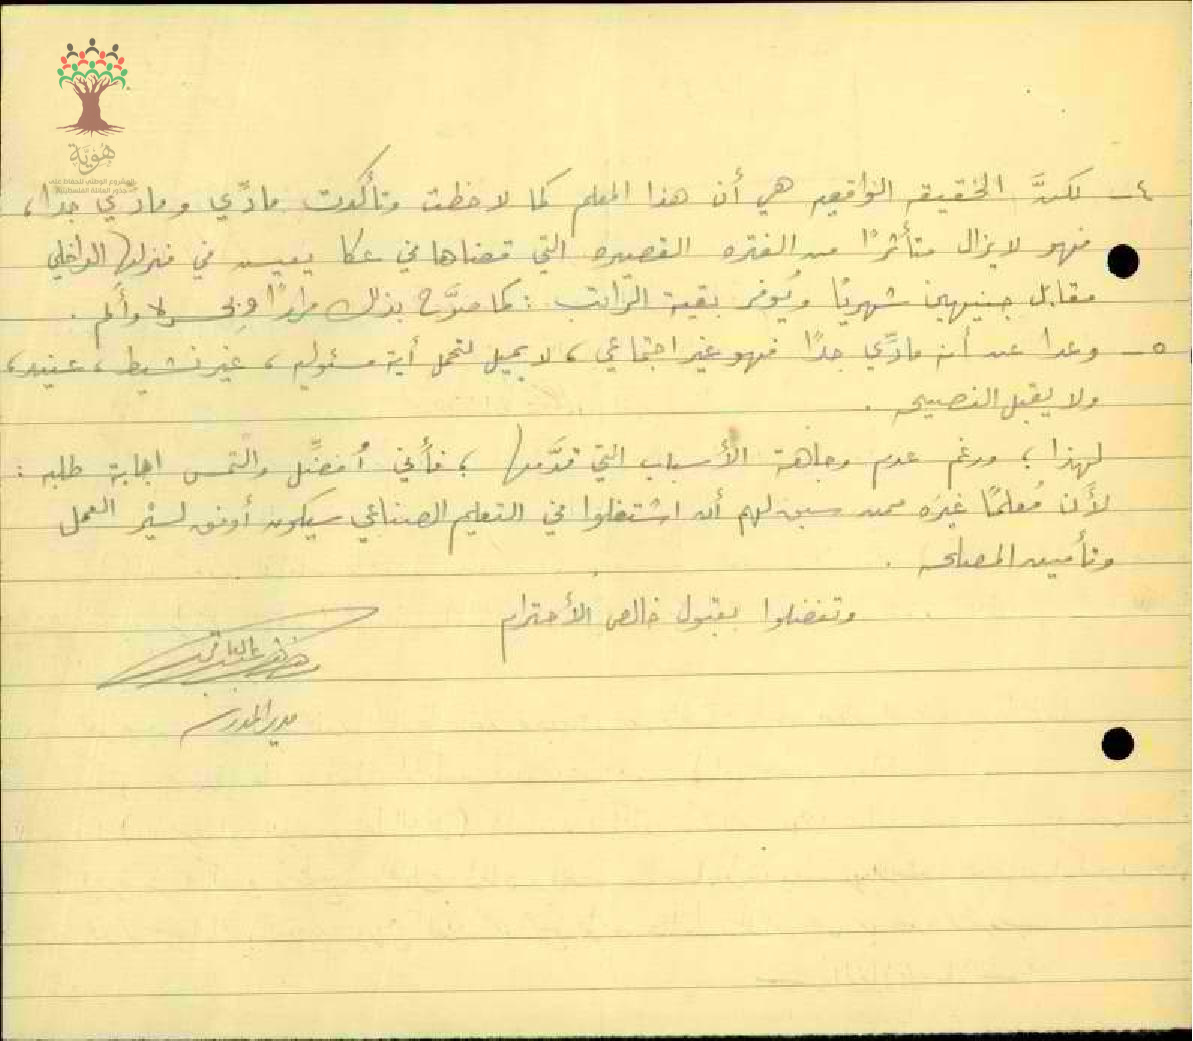 هُوِيَّة
المشروع الوطني للحفاظ على
جذور العائلة الفلسطينية
٤ـ لكنَّ الحقيقه الواقعيه هي أن هذا المعلم كما لاحظت وتأكدت مادِّي ومادِّي جدا،
فهو لا يزال متأثرًا من الفتره القصيره التي قضاها في عكا يعيش في منزلها الداخلي
مقابل جنيهين شهريًا ويُوفر بقية الراتب : كما صرَّح بذلك مرارًا وألم .
٥ـ وعدا عن أنه مادِّي جدًا فهو غير اجتماعي ، لا يميل لتحمل أية مسئوليه ، غير نشيط ، عنيد ،
ولا يقبل النصيحه .
لهذا ؛ ورغم عدم وجاهة الأسباب التي قدَّمها ؛ فأني أُفضِّل والتمس اجابة طلبه :
لأَن مُعلمًا غيرَه ممن سبق لهم أن اشتغلوا في التعليم الصناعي سيكون أوفق لسيْر العمل
وتأمين المصلحه .
وتفضلوا بقبول خالص الأحترام
مدير المدرسه